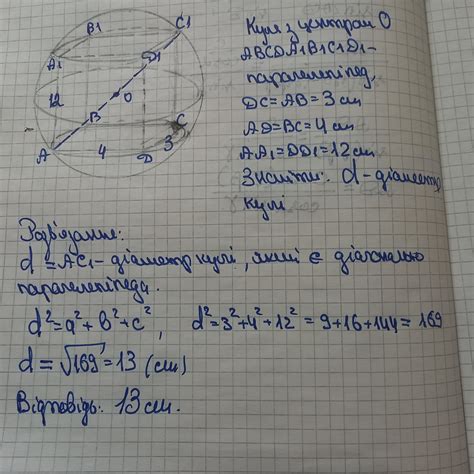 B1
C1
A1
D1
12
O
B
C
A
4
D
3
Куля з центром O
ABCDA1B1C1D1-
паралелепіпед,
DC=AB=3 см
AD=BC=4 см
AA1=DD1=12 см
Знайти: d-діаметр
кулі
Розв'язання:
d=AC1-діаметр кулі, який є діагоналлю
паралелепіпеда.
d²=a²+b²+c², d²=3²+4²+12²=9+16+144=169
d=√169=13 (см)
Відповідь: 13 см.